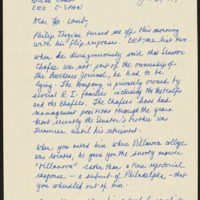 CEO C-SPAN
Dear Mr. Lamb,
Philip Terzian turned me off this morning
with his flip response. Let me list two.
When he disingenuously said that Senator
Chafee was not part of the ownership of
The Providence Journal, he had to be
lying. The Company is privately owned by
several R.I. families including the Metcalfs
and the Chafees. The Chafees have had
management positions through the years.
Most recently the Senator's brother was
treasurer until his retirement.
When you asked him where Villanova college
was located, he gave you the snooty movie
"Villanova" rather than a true reportorial
response - a suburb of Philadelphia - that
you wheedled out of him.